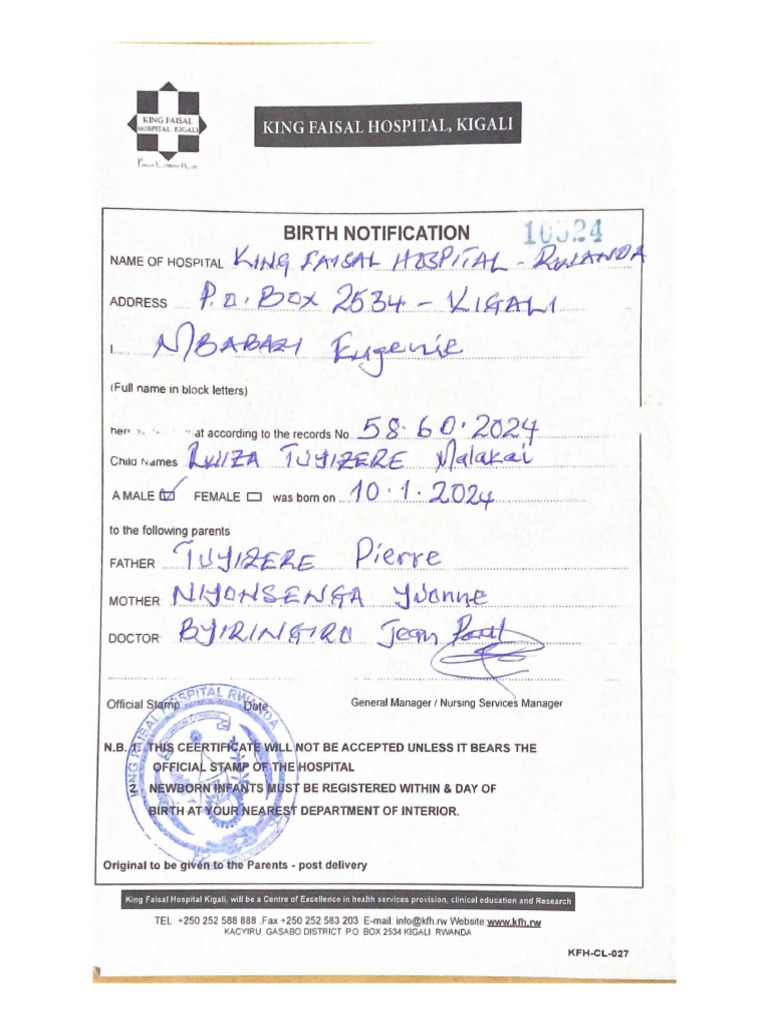 KING FAISAL
HOSPITAL KIGALI
KING FAISAL HOSPITAL, KIGALI
BIRTH NOTIFICATION
NAME OF HOSPITAL KING FAISAL HOSPITAL - RWANDA
ADDRESS P.O. BOX 2534 - KIGALI
I MBABAZI Eugenie
(Full name in block letters)
at according to the records No 58.60.2024
Child Names RWIZA TUYIZERE Malakai
A MALE ☑ FEMALE ☐ was born on 10.1.2024
to the following parents
FATHER TUYIZERE Pierre
MOTHER NIYONSENGA Yvonne
DOCTOR BYIRINGIRO Jean Paul
Official Stamp Date General Manager / Nursing Services Manager
KING FAISAL HOSPITAL RWANDA
N.B. 1. THIS CEERTIFICATE WILL NOT BE ACCEPTED UNLESS IT BEARS THE
OFFICIAL STAMP OF THE HOSPITAL
2 NEWBORN INFANTS MUST BE REGISTERED WITHIN & DAY OF
BIRTH AT YOUR NEAREST DEPARTMENT OF INTERIOR.
Original to be given to the Parents - post delivery
King Faisal Hospital Kigali, will be a Centre of Excellence in health services provision, clinical education and Research
TEL +250 252 588 888 .Fax +250 252 583 203 E-mail: info@kfh.rw Website:www.kfh.rw
KACYIRU GASABO DISTRICT P.O BOX 2534 KIGALI RWANDA
KFH-CL-027